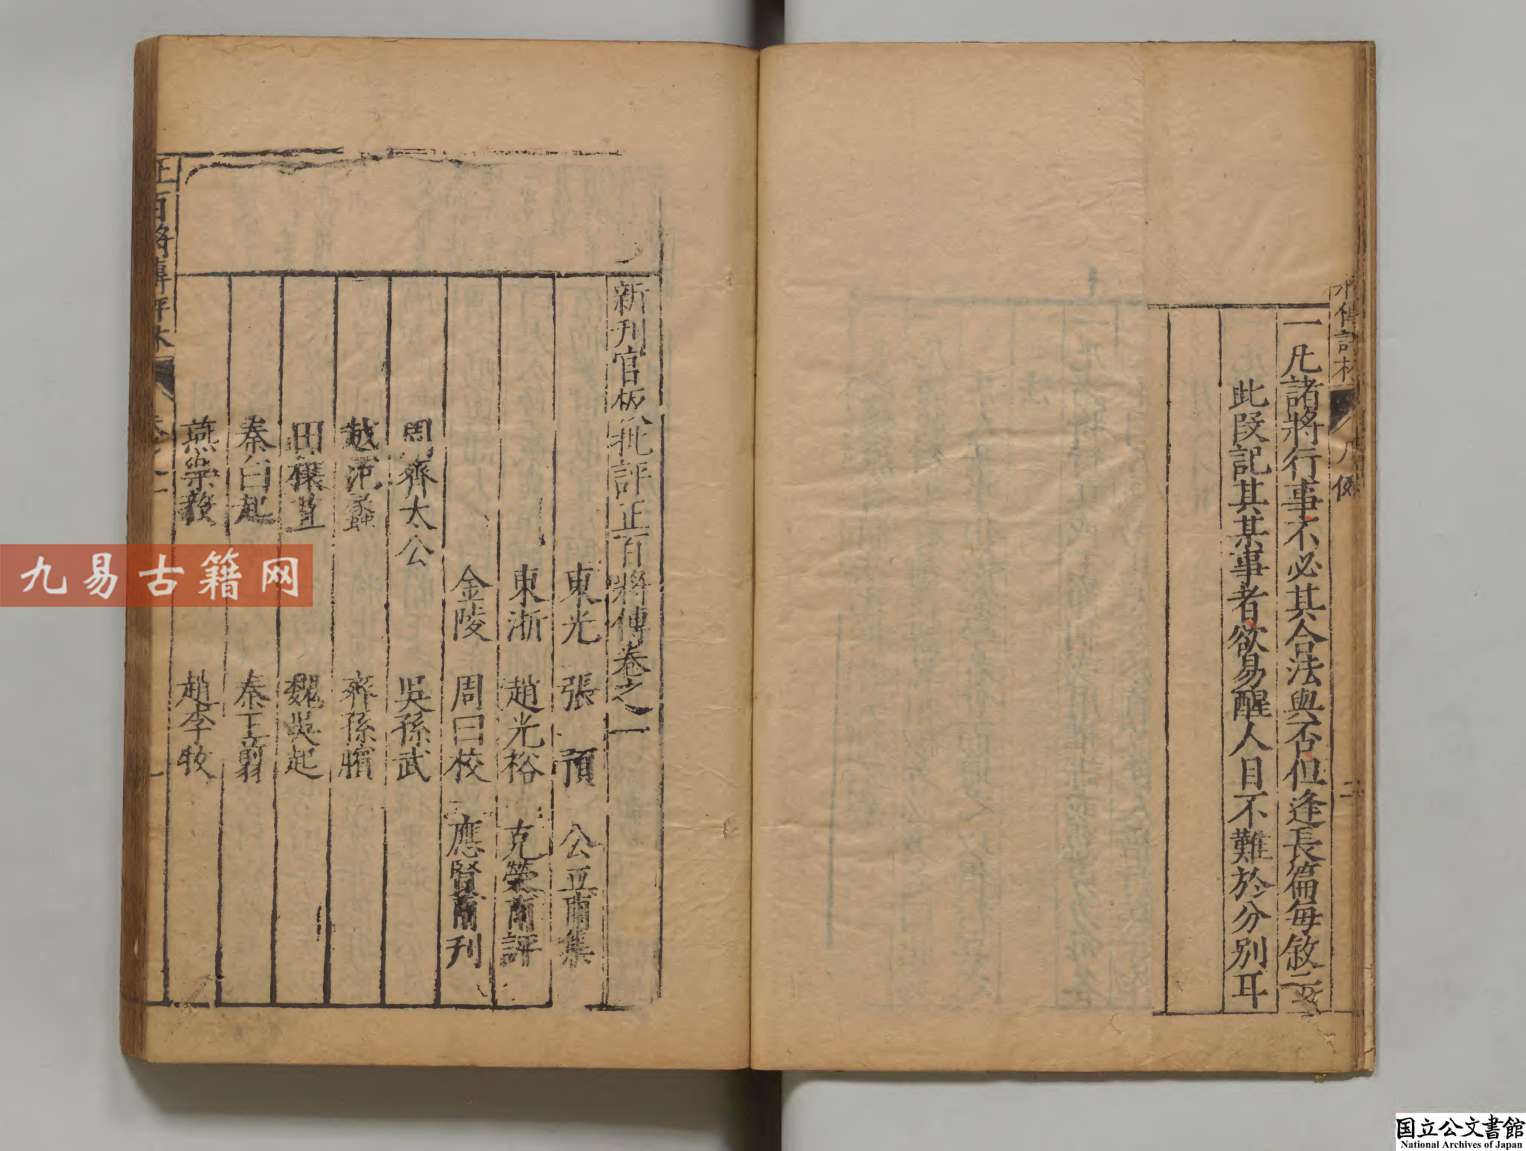 一凡諸將行事不必其合法與否但逢長篇每敘一段
此段記其某事者欲易醒人目不難於分別耳
凡例
二
新刊官板批評正百將傳卷之一
東光 張 預 公立甫集
東浙 趙光裕 克榮甫評
金陵 周曰校 應賢甫刊
周齊太公 吳孫武
越范蠡 齊孫臏
田穰苴 魏吳起
秦白起 秦王翦
燕樂毅 趙李牧
正百將傳評林
卷之一
一
九易古籍网
国立公文書館
National Archives of Japan